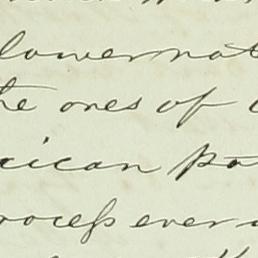 lower not
the ones of
xican pa
rocess ever